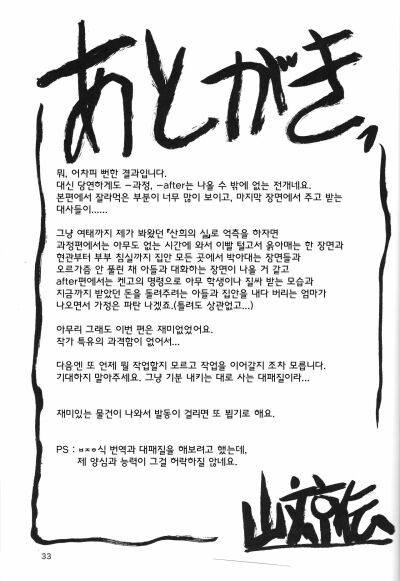 あとがき。
뭐, 어차피 뻔한 결과입니다.
대신 당연하게도 -과정, -after는 나올 수 밖에 없는 전개네요.
본편에서 잘라먹은 부분이 너무 많이 보이고, 마지막 장면에서 주고 받는
대사들이......
그냥 여태까지 제가 봐왔던 『산회의 실』로 억측을 하자면
과정편에서는 아무도 없는 시간에 와서 이빨 털고서 옭아매는 한 장면과
현관부터 부부 침실까지 집안 모든 곳에서 박아대는 장면들과
오르가즘 안 풀린 채 아들과 대화하는 장면이 나올 거 같고
after편에서는 켄고의 명령으로 아무 학생이나 질싸 받는 모습과
지금까지 받았던 돈을 돌려주려는 아들과 집안을 내다 버리는 엄마가
나오면서 가정은 파탄 나겠죠.(틀려도 상관없고...)
아무리 그래도 이번 편은 재미없었어요.
작가 특유의 과격함이 없어서...
다음엔 또 언제 뭘 작업할지 모르고 작업을 이어갈지 조차 모릅니다.
기대하지 말아주세요. 그냥 기분 내키는 대로 사는 대패질이라...
재미있는 물건이 나와서 발동이 걸리면 또 뵙기로 해요.
PS : ㅂㅈㅇ식 번역과 대패질을 해보려고 했는데,
제 양심과 능력이 그걸 허락하질 않네요.
33